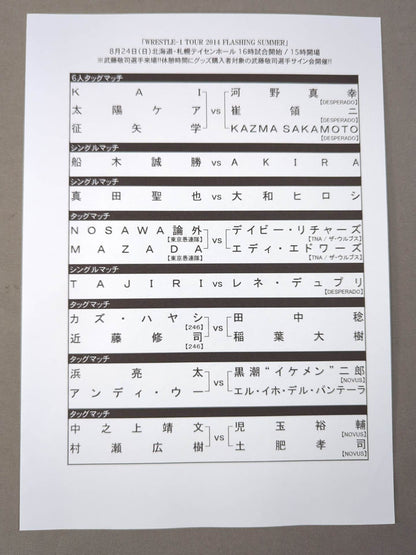 「WRESTLE-1 TOUR 2014 FLASHING SUMMER」
8月24日(日)北海道・札幌テイセンホール 16時試合開始/15時開場
※武藤敬司選手来場!!休憩時間にグッズ購入者対象の武藤敬司選手サイン会開催!!
6人タッグマッチ
KAI vs 河野真幸
【DESPERADO】
太陽ケア 崔領二
【DESPERADO】
征矢学 KAZMA SAKAMOTO
【DESPERADO】
シングルマッチ
船木誠勝 vs AKIRA
シングルマッチ
真田聖也 vs 大和ヒロシ
タッグマッチ
NOSAWA論外 vs デイビー・リチャーズ
【東京愚連隊】 【TNA / ザ・ウルブス】
MAZADA エディ・エドワーズ
【東京愚連隊】 【TNA / ザ・ウルブス】
シングルマッチ
TAJIRI vs レネ・デュプリ
【DESPERADO】
タッグマッチ
カズ・ハヤシ vs 田中稔
【246】
近藤修司 稲葉大樹
【246】
タッグマッチ
浜亮太 vs 黒潮“イケメン”二郎
【NOVUS】
アンディ・ウー エル・イホ・デル・パンテーラ
タッグマッチ
中之上靖文 vs 児玉裕輔
【NOVUS】
村瀬広樹 土肥孝司
【NOVUS】